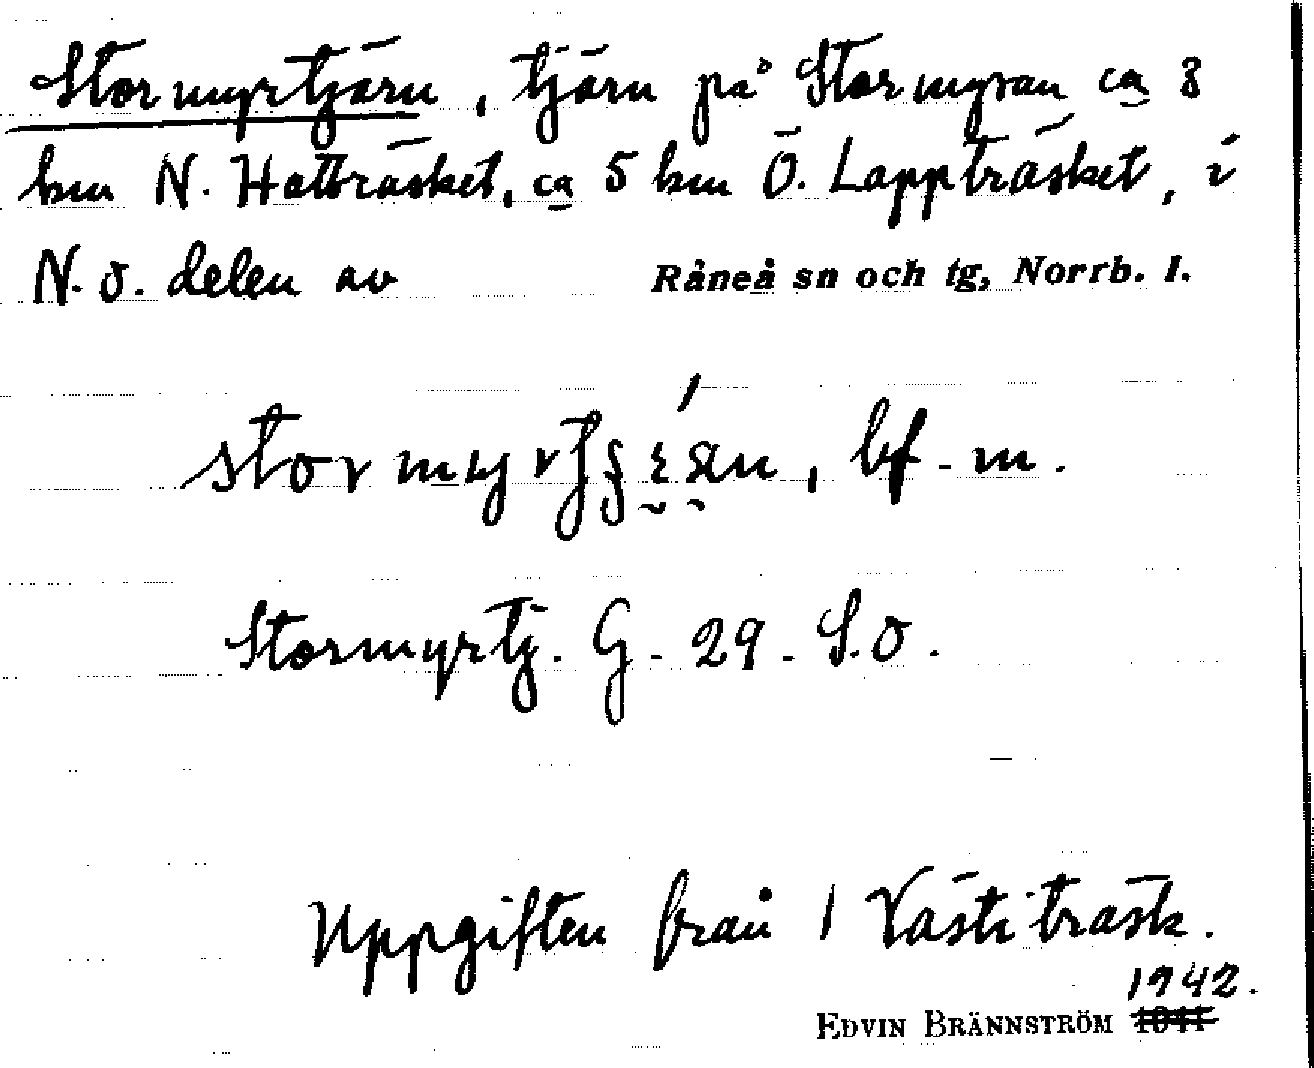 Stormyrtjärn, tjärn på Stormyran ca 3
km N. Hatträsket, ca 5 km Ö. Lappträsket, i
N.ö. delen av Råneå sn och tg, Norrb. l.
bf. m.
Stormyrtj. G. 29. S.O.
Uppgiften från 1 Västiträsk.
1942.
EDVIN BRÄNNSTRÖM 1941